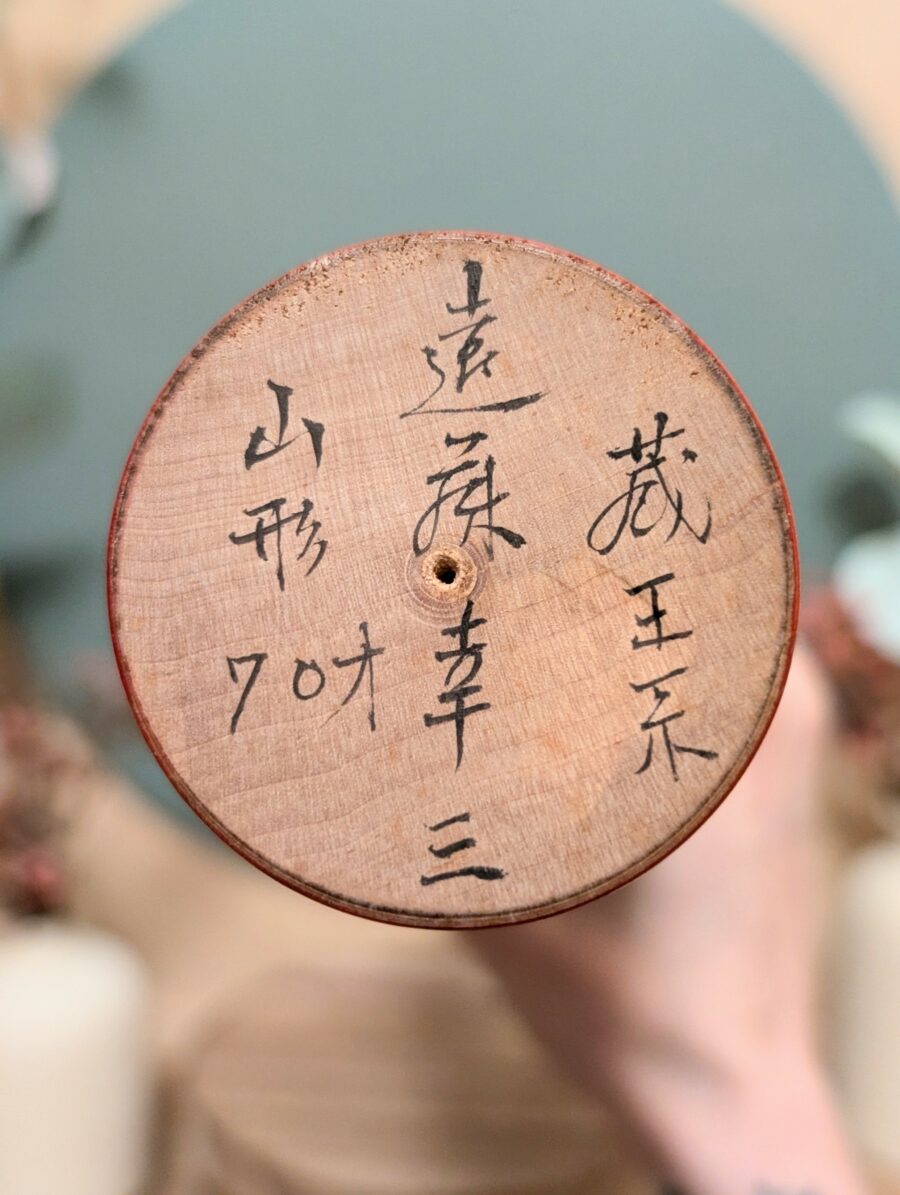 蔵王系
遠藤幸三
山形
70才